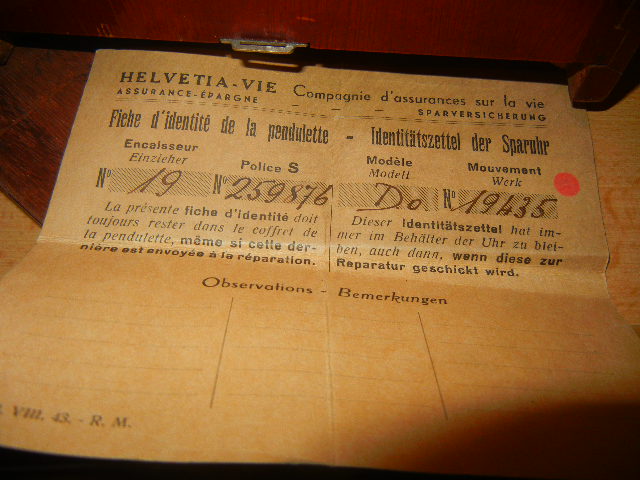 HELVETIA-VIE Compagnie d'assurances sur la vie
ASSURANCE-ÉPARGNE SPARVERSICHERUNG
Fiche d'identité de la pendulette - Identitätszettel der Sparuhr
Encaisseur
Einzieher
Police S
Modèle
Modell
Mouvement
Werk
Nº 19 Nº 259876 Do Nº 19435
La présente fiche d'identité doit
toujours rester dans le coffret de
la pendulette, même si cette der-
nière est envoyée à la réparation.
Dieser Identitätszettel hat im-
mer im Behälter der Uhr zu blei-
ben, auch dann, wenn diese zur
Reparatur geschickt wird.
Observations - Bemerkungen
VIII. 43. - R. M.